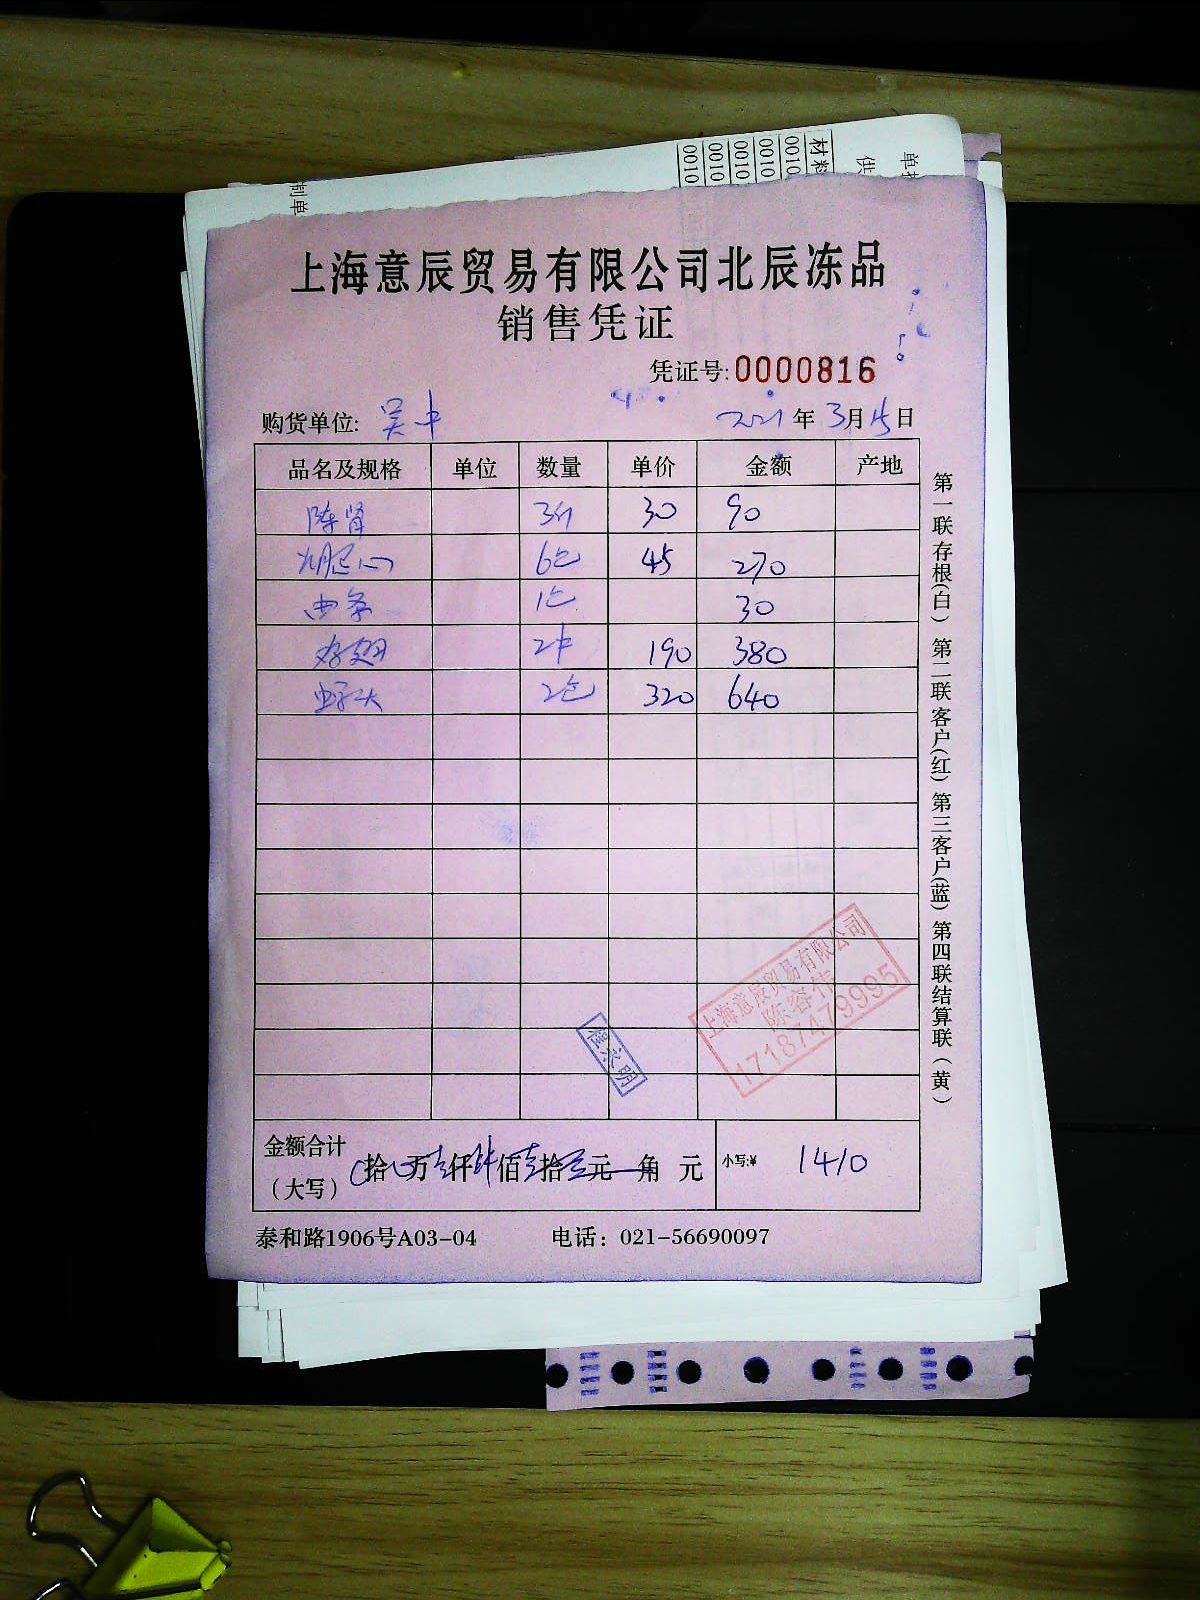 制单
材料
0010
0010
0010
0010
0010
供
单
上海意辰贸易有限公司北辰冻品
销售凭证
凭证号:0000816
购货单位: 吴中 2021年3月15日
品名及规格 单位 数量 单价 金额 产地
陈肾 30 90
6包 45 270
1包 30
190 380
2包 320 640
第一联存根(白) 第二联客户(红) 第三客户(蓝) 第四联结算联(黄)
上海意辰贸易有限公司
陈容伟
17187479995
程永明
金额合计
(大写) 拾 万 仟 佰 拾 元 角 元 小写:¥ 1410
泰和路1906号A03-04 电话: 021-56690097